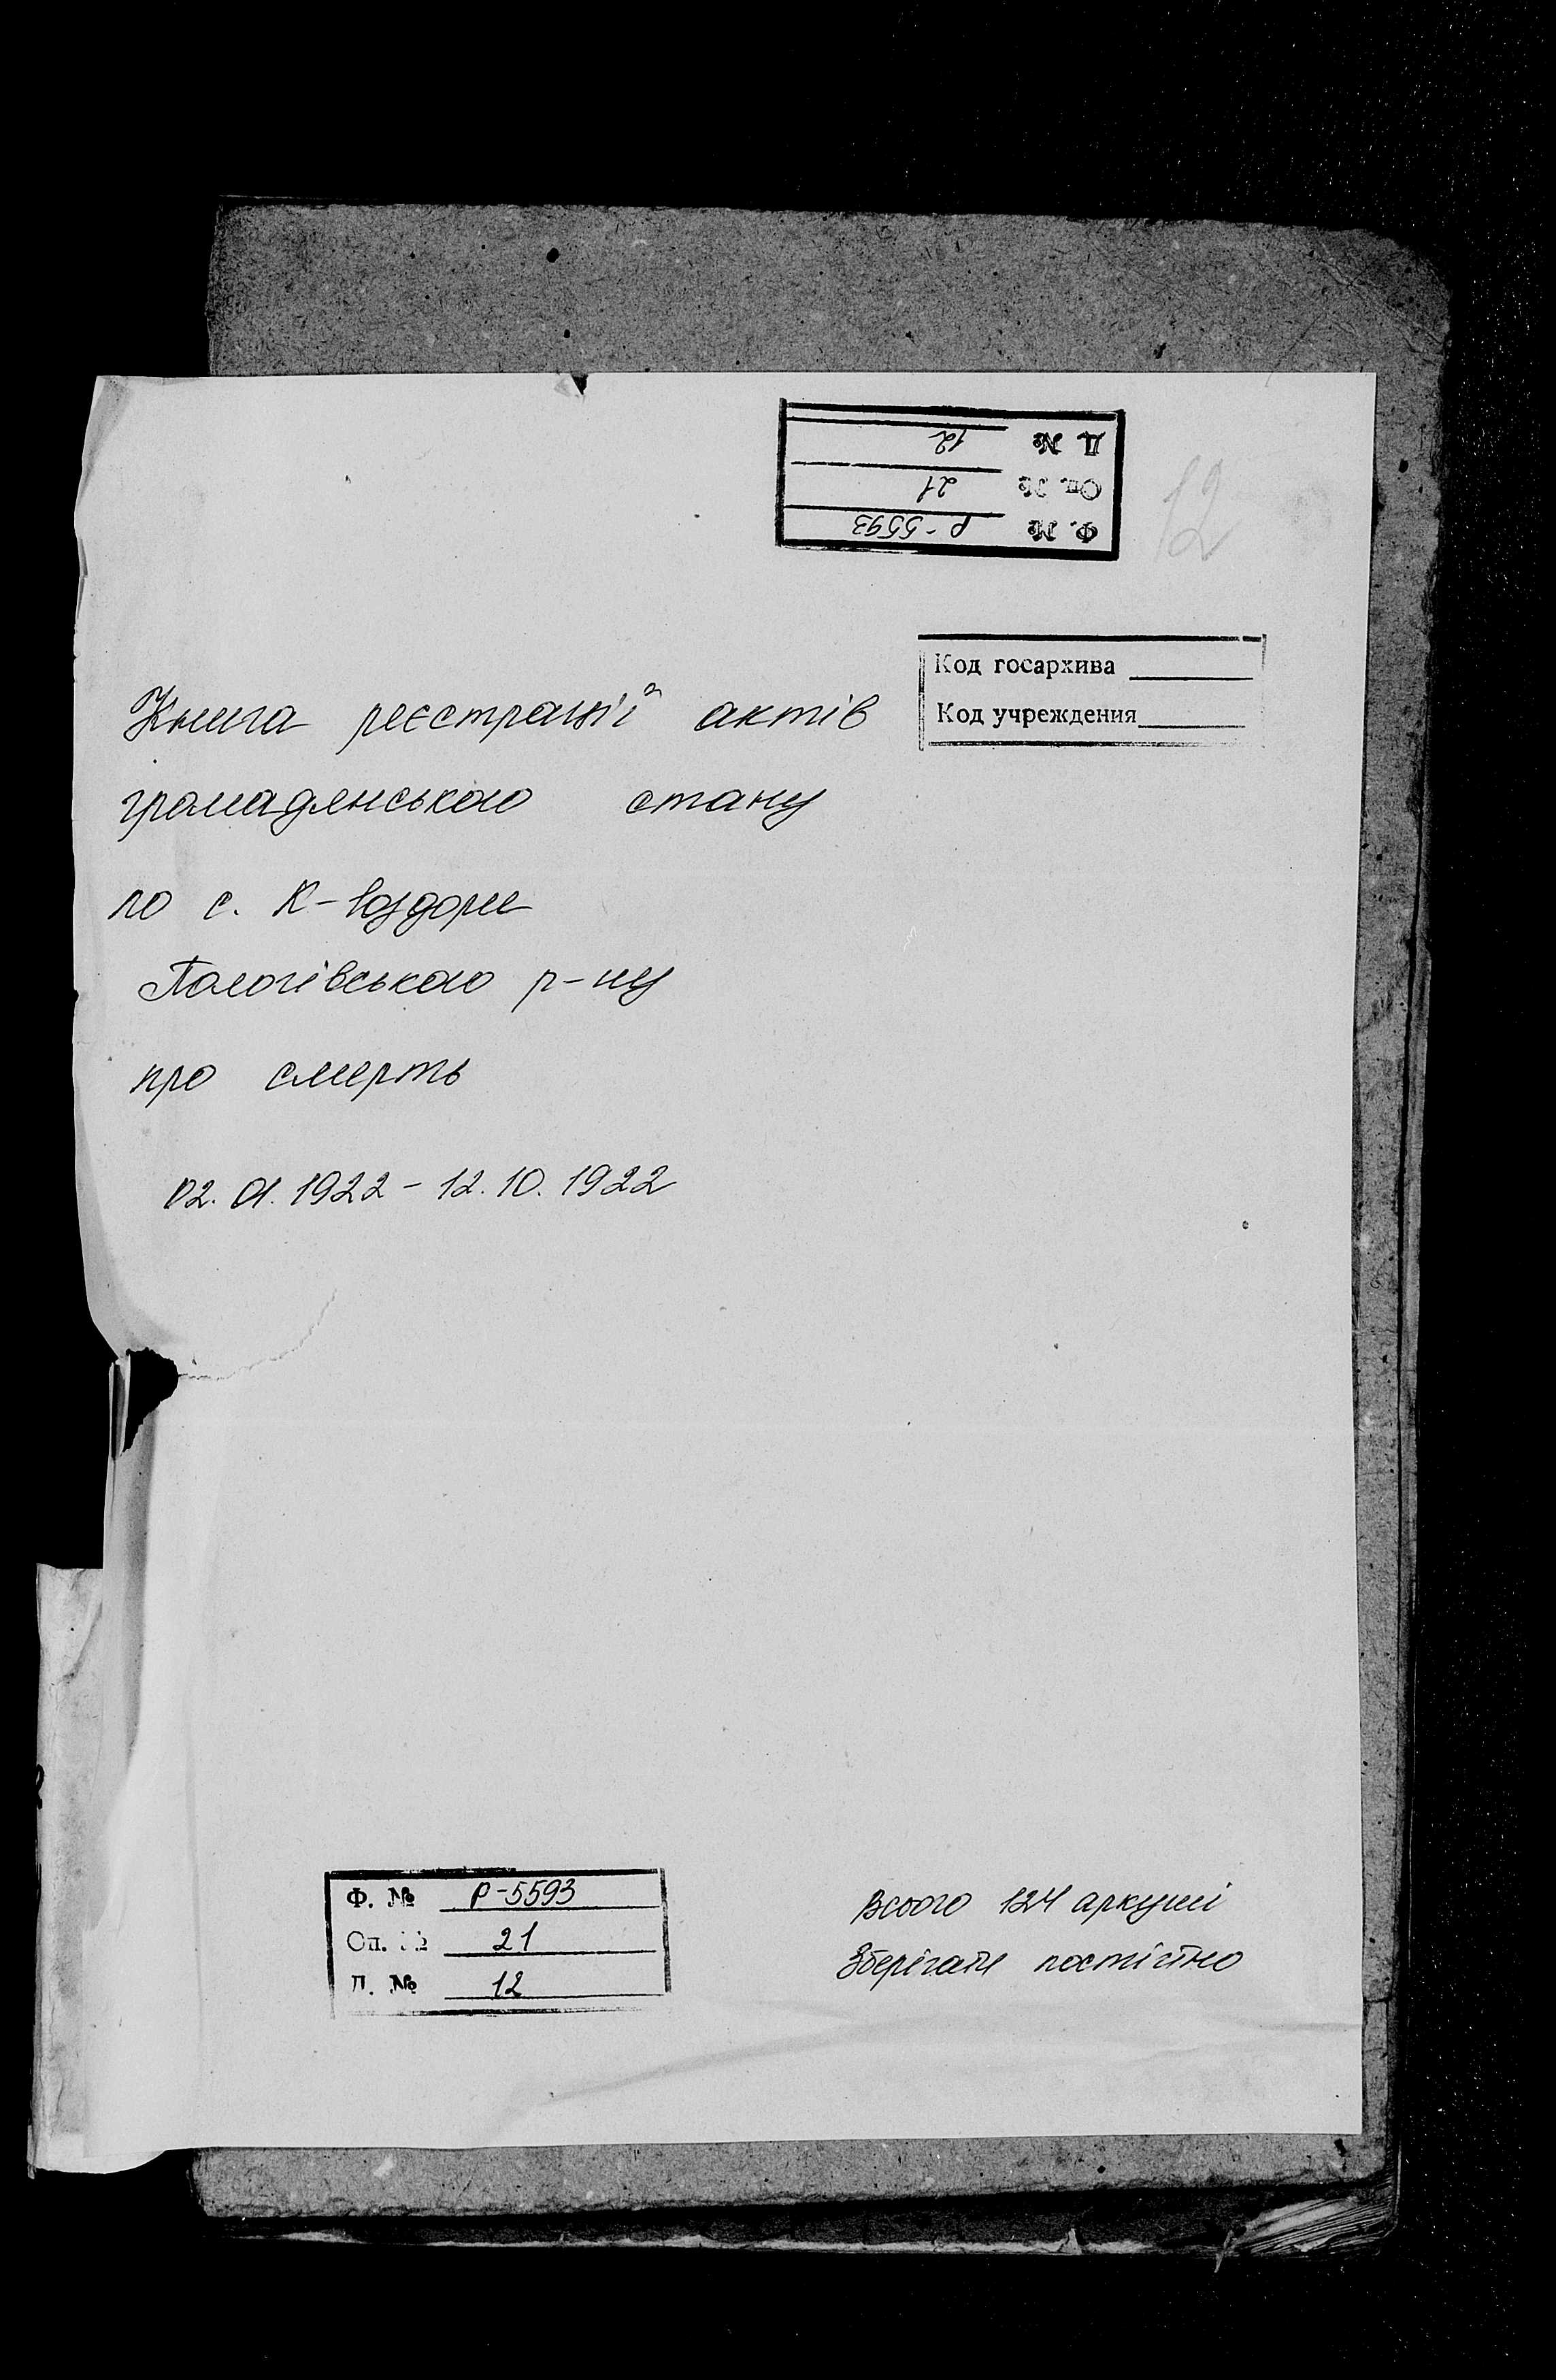 Д. № 12
Оп. № 21
Ф. № Р-5593
12
Код госархива
Код учреждения
Книга реєстрації актів
громадянського стану
по с. К-Роздори
Пологівського р-ну
про смерть
02.01.1922 - 12.10.1922
Ф. № Р-5593
Оп. № 21
Д. № 12
Всього 124 аркуші
Зберігати постійно